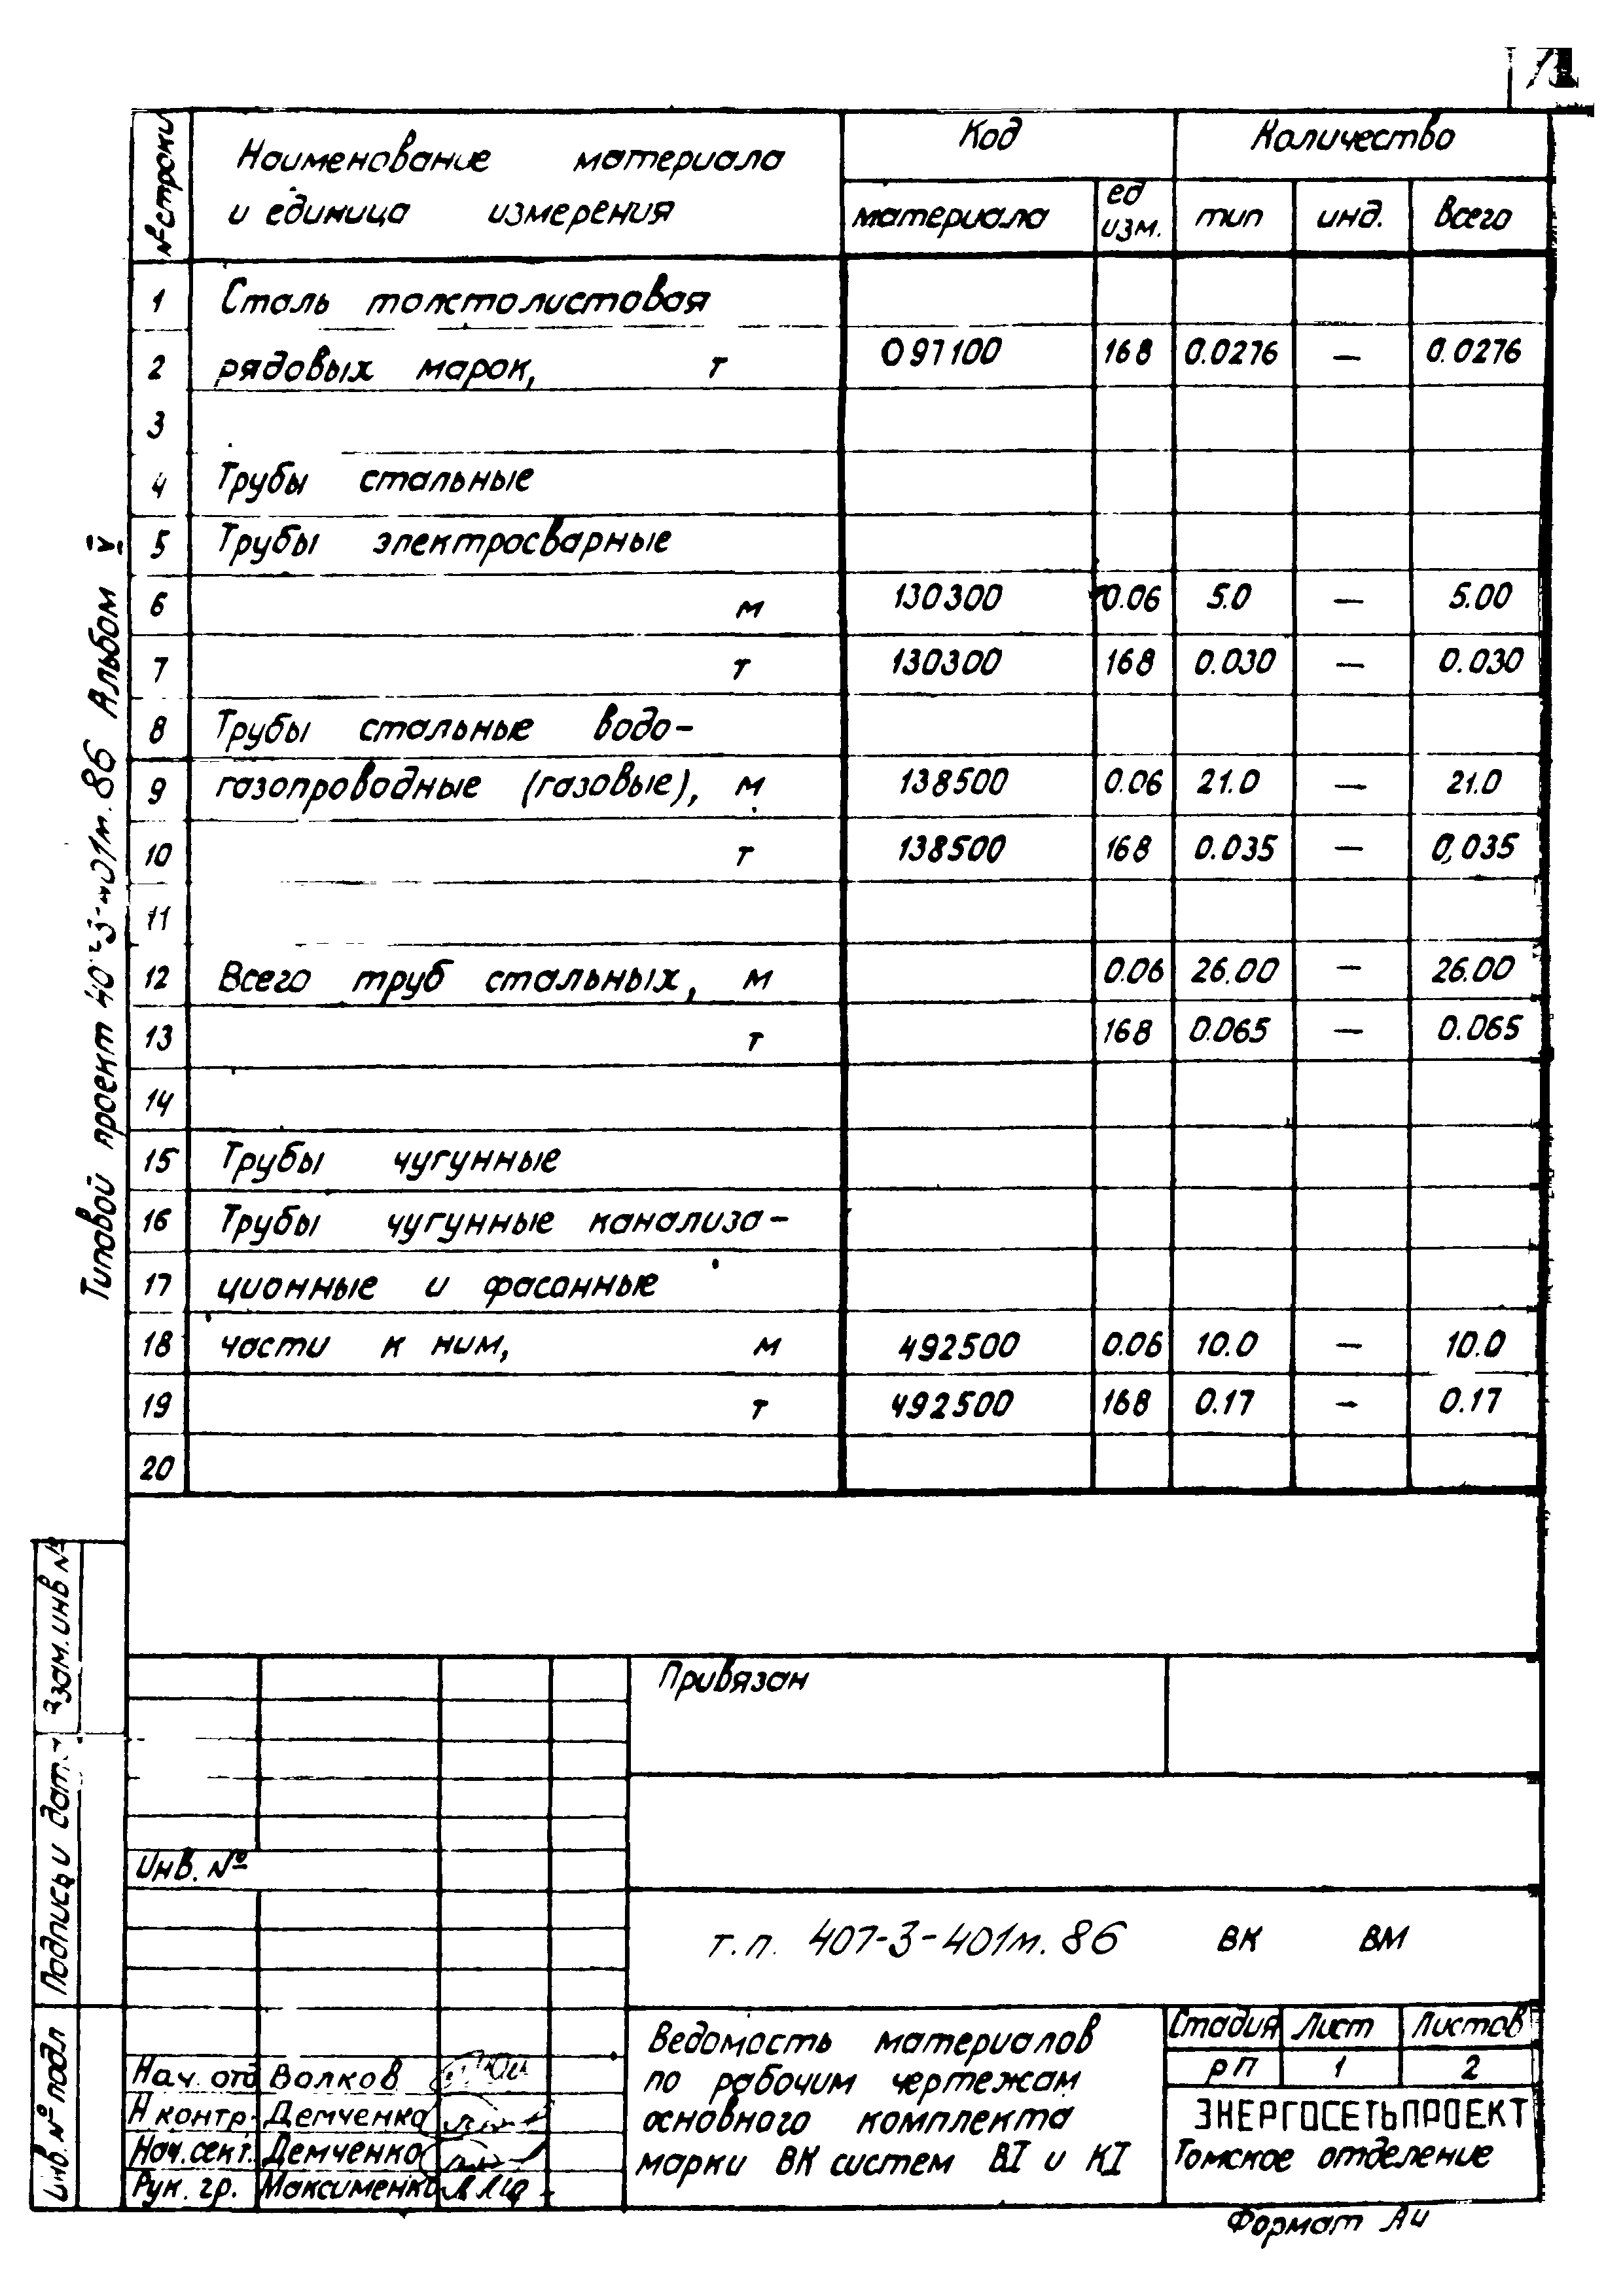 № строки
Наименование материала
и единица измерения
Код
Количество
материала
ед изм.
тип
инд.
Всего
1 Сталь толстолистовая
2 рядовых марок, т 097100 168 0.0276 — 0.0276
3
4 Трубы стальные
5 Трубы электросварные
6 м 130300 0.06 5.0 — 5.00
7 т 130300 168 0.030 — 0.030
8 Трубы стальные водо-
9 газопроводные (газовые), м 138500 0.06 21.0 — 21.0
10 т 138500 168 0.035 — 0,035
11
12 Всего труб стальных, м 0.06 26.00 — 26.00
13 т 168 0.065 — 0.065
14
15 Трубы чугунные
16 Трубы чугунные канализа-
17 ционные и фасонные
18 части к ним, м 492500 0.06 10.0 — 10.0
19 т 492500 168 0.17 — 0.17
20
Типовой проект Альбом V
Взам. инв №
Подпись и дата
Инв. № подл
Привязан
Инв. №
т.п. 407-3-401м.86 ВК ВМ
Нач. отд Волков
Н контр. Демченко
Нач. сект. Демченко
Рук. гр. Максименко
Ведомость материалов
по рабочим чертежам
основного комплекта
марки ВК систем ВI и КI
Стадия Лист Листов
рп 1 2
ЭНЕРГОСЕТЬПРОЕКТ
Томское отделение
Формат А4